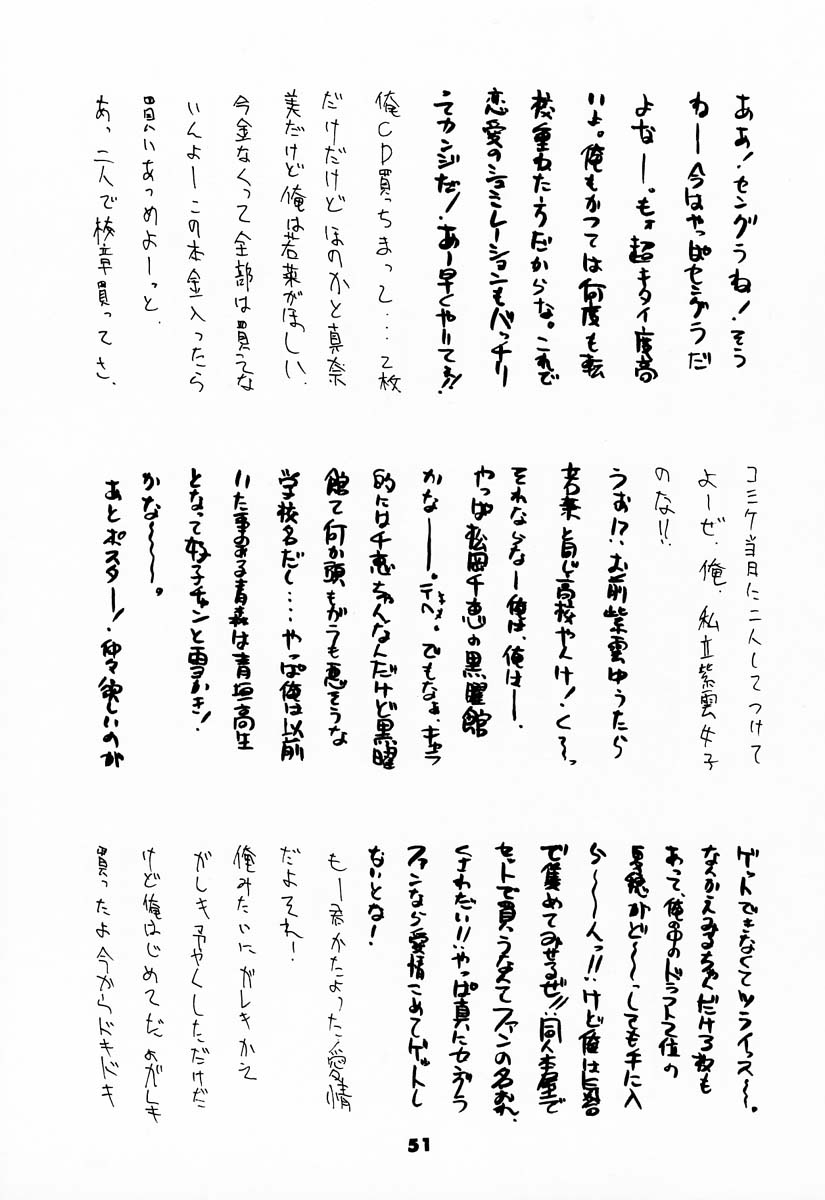 ああ！セングラね！そう
ねー今はやっぱセングラだ
よなー。もォ超キタイ度高
いよ。俺もかつては何度も転
校重ねた方だからな。これで
恋愛のシュミレーションもバッチリ
てカンジだ！あー早くやりてぇ！
俺CD買っちまって…2枚
だけだけど ほのかと真奈
美だけど俺は若菜がほしい.
今金なくって全部は買えな
いんよーこの本金入ったら
買いあつめよーっと.
あっ、二人で校章買ってさ、
コミケ当日に二人してつけて
よーぜ、俺、私立紫雲女子
のな!!
うお!?お前紫雲ゆうたら
若菜と同じ高校やんけ！く〜っ
それならなー俺は、俺はー、
やっぱ松岡千恵の黒曜館
かなー。テヘ。でもなぁ、キャラ
的には千恵ちゃんなんだけど黒曜
館て何か頭もガラも悪そうな
学校名だし…やっぱ俺は以前
いた事のある青森は青垣高生
となって妙子チャンと雪かき！
かな〜〜。
あとポスター！中々欲しいのが
ゲットできなくてツライっス〜。
なんかえみるちゃんだけ3枚も
あって、俺の中のドラフト2位の
夏穂がど〜〜っしても手に入
ら〜〜んっ!!けど俺は自力
で集めてみせるぜ!!同人本屋で
セットで買うなんてファンの名おれ、
くさわたい!!やっぱ真にセングラ
ファンなら愛情こめてゲットし
ないとな！
もー君かたよった愛情
だよそれー！
俺みたいにガレキかえ
がレキ予やくしただけだ
けど俺はじめてだよガレキ
買ったよ今からドキドキ
51